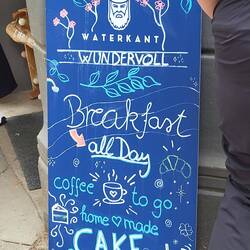 WATERKANT
WUNDERVOLL
Breakfast
all Day
coffee to go
home made
CAKE